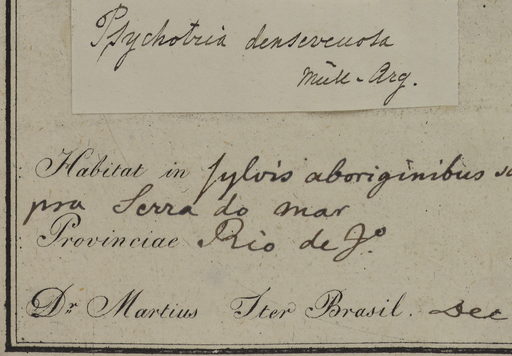 Psychotria densevenosa
Müll-Arg.
Habitat in sylvis aboriginibus su
pra Serra do mar
Provinciae Rio de Jº
Dr Martius Iter Brasil. Dec